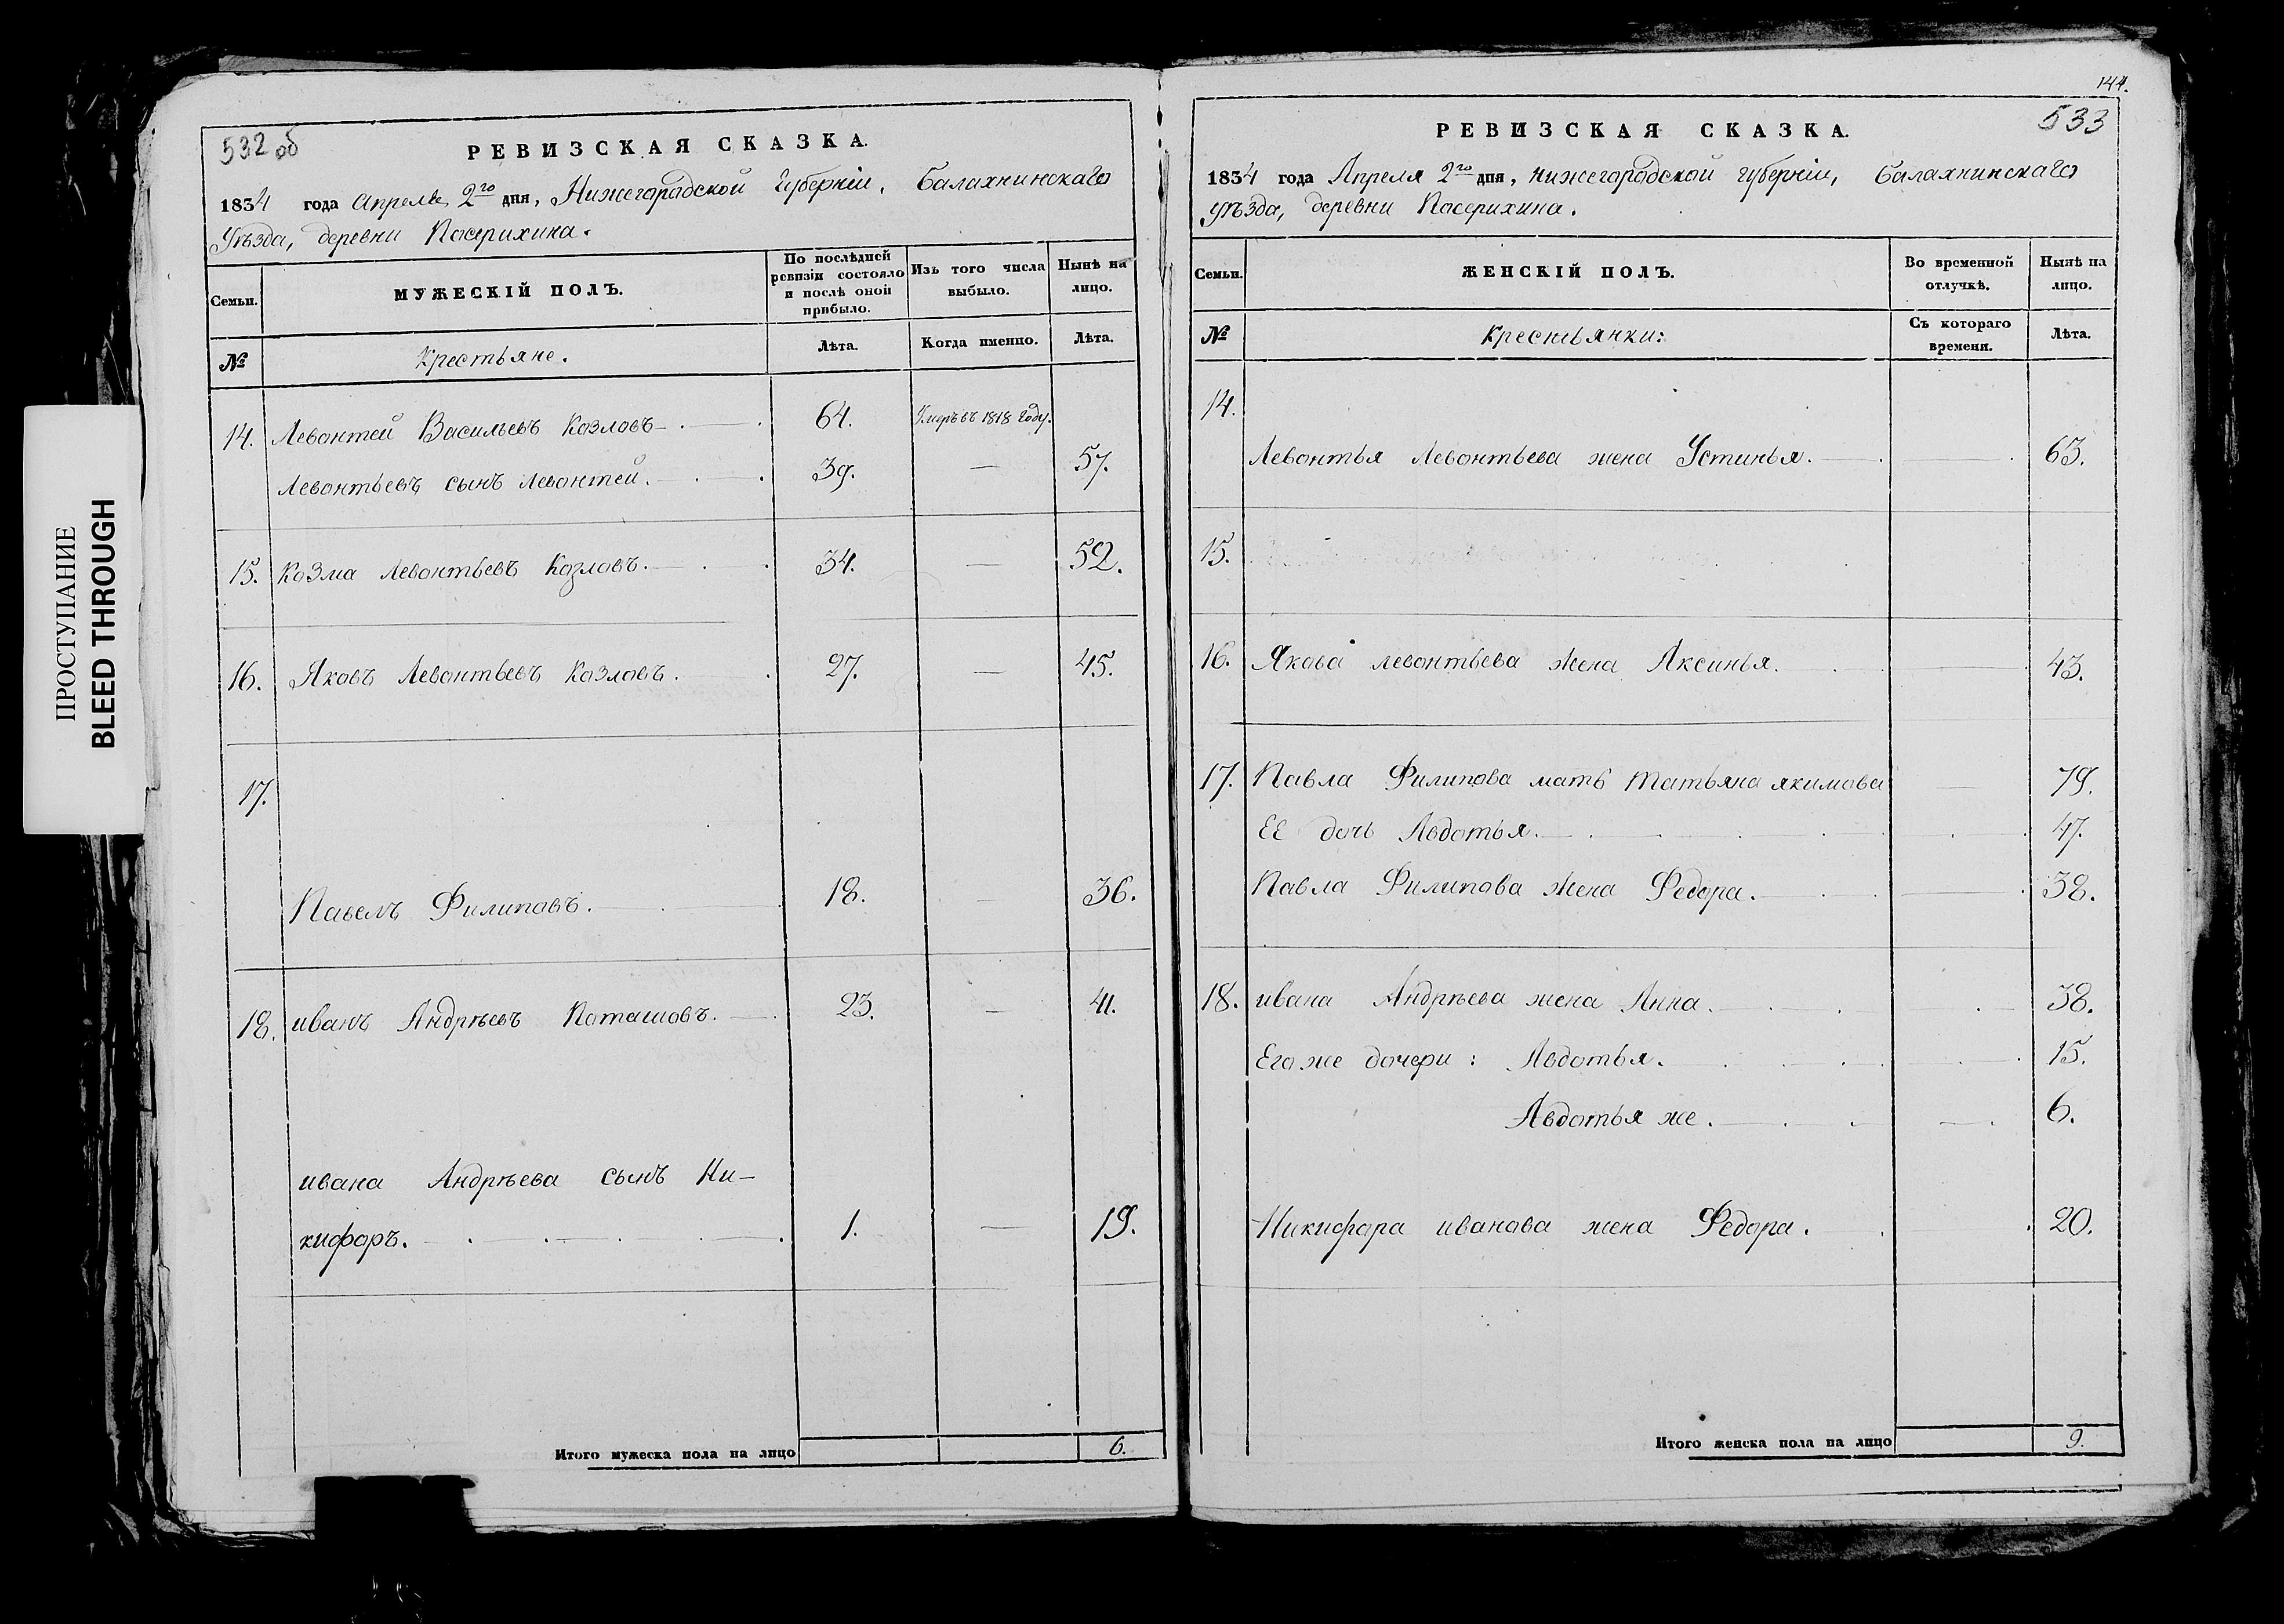 144.
532 об
РЕВИЗСКАЯ СКАЗКА.
1834 года Апреля 2го дня, Нижегородской губерніи, Балахнинскаго
Уѣзда, деревни Пасерихина.
Семьи.
МУЖЕСКІЙ ПОЛЪ.
По послѣдней ревизіи состояло и послѣ оной прибыло.
Изъ того числа выбыло.
Нынѣ на лицо.
№
Крестьяне.
Лѣта.
Когда именно.
Лѣта.
14. Левонтей Васильевъ Козловъ 64. Умеръ въ 1818 году.
Левонтьевъ сынъ Левонтей. 39. — 57.
15. Козма Левонтьевъ Козловъ. 34. — 52.
16. Яковъ Левонтьевъ Козловъ. 27. — 45.
17.
Павелъ Филиповъ. 18. — 36.
18. иванъ Андрѣевъ Поташовъ. 23. — 41.
ивана Андрѣева сынъ Ни-
кифоръ. 1. — 19.
Итого мужеска пола на лицо 6.
533
РЕВИЗСКАЯ СКАЗКА.
1834 года Апреля 2го дня, Нижегородской губерніи, Балахнинскаго
уѣзда, деревни Пасерихина.
Семьи.
ЖЕНСКІЙ ПОЛЪ.
Во временной отлучкѣ.
Нынѣ на лицо.
№
Крестьянки:
Съ котораго времени.
Лѣта.
14.
Левонтья Левонтьева жена Устинья. 63.
15.
16. Якова Левонтьева жена Аксинья. 43.
17. Павла Филипова мать Татьяна якимова — 79.
ЕЕ дочь Авдотья. 47.
Павла Филипова жена Федора. 38.
18. ивана Андрѣева жена Анна. 38.
Его же дочери: Авдотья. 15.
Авдотья же. 6.
Никифора иванова жена Федора. 20.
Итого женска пола на лицо 9.
ПРОСТУПАНИЕ
BLEED THROUGH